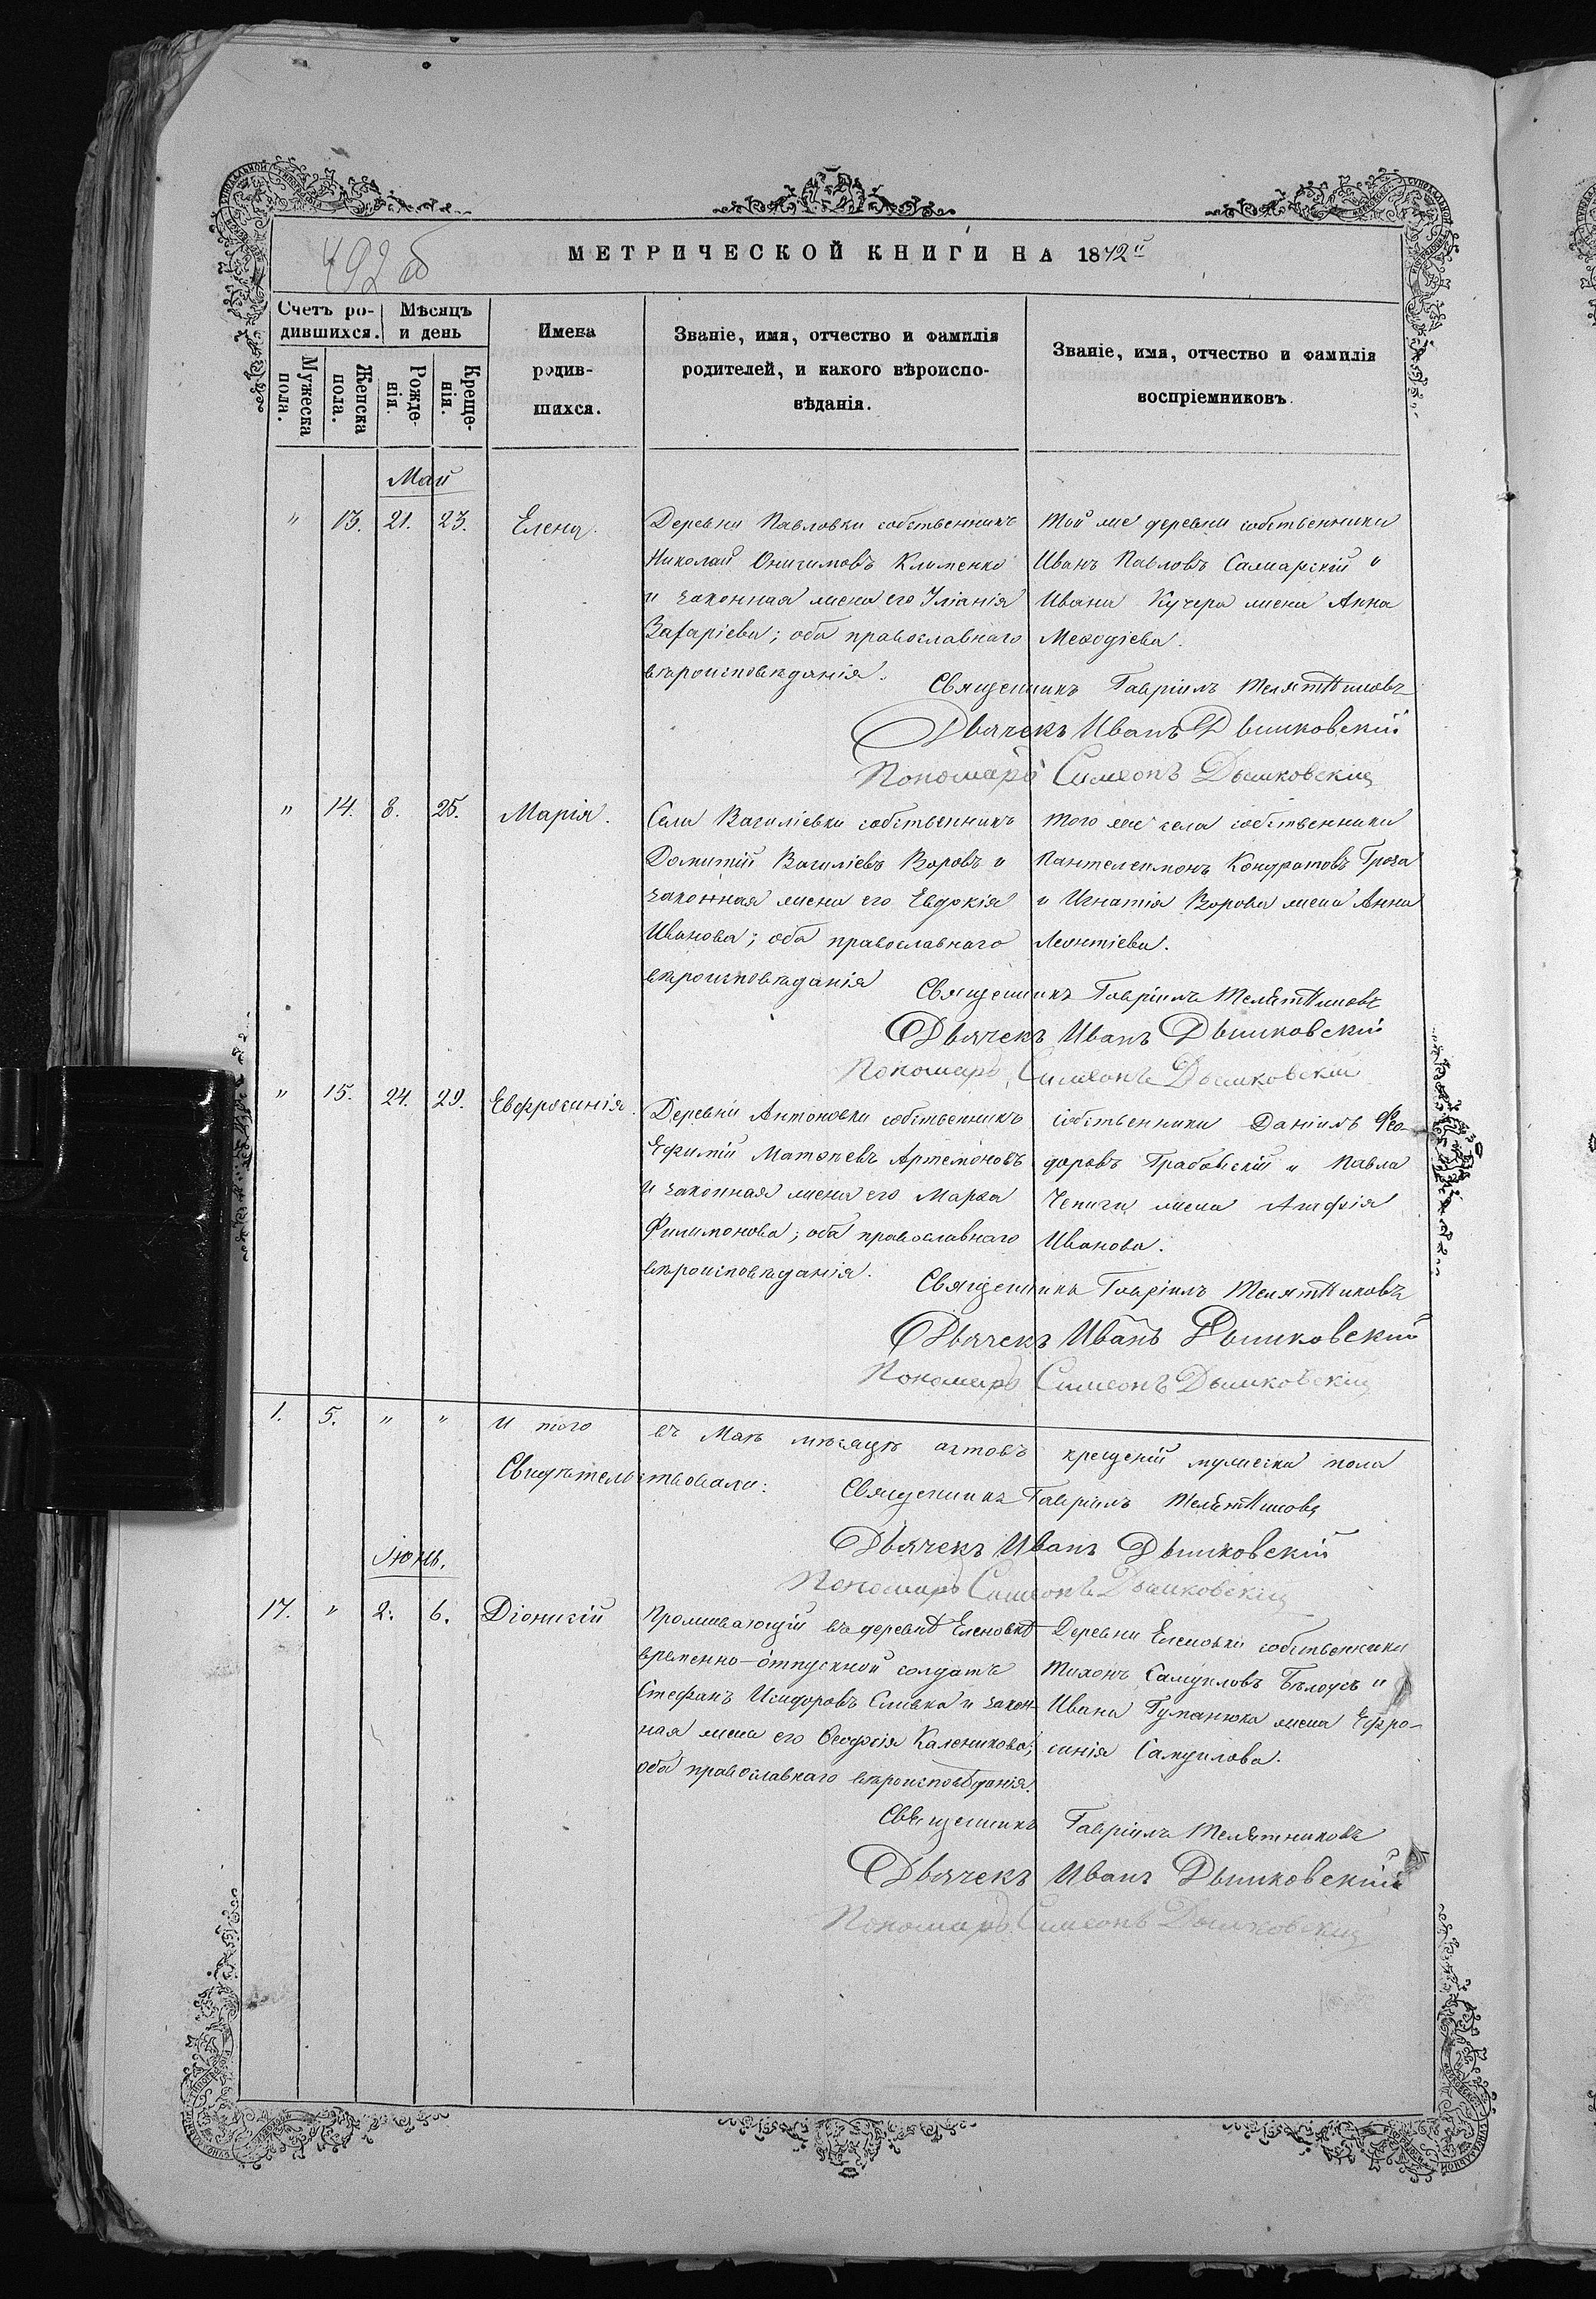 492 об
МЕТРИЧЕСКОЙ КНИГИ НА 1872й
Счетъ родившихся.
Мѣсяцъ и день
Мужеска пола.
Женска пола.
Рожденія.
Крещенія.
Имена родившихся.
Званіе, имя, отчество и фамилія
родителей, и какого вѣроиспо-
вѣданія.
Званіе, имя, отчество и фамилія
воспріемниковъ.
Май
" 13. 21. 23. Елена.
Деревни Павловки собственникъ
Николай Онисимовъ Клименко
и законная жена его Уліанія
Захаріева; оба православнаго
вѣроисповѣданія.
Той же деревни собственники
Иванъ Павловъ Самарскій и
Ивана Кучера жена Анна
Меѳодіева.
Священникъ Гавріилъ Телятниковъ
Дьячекъ Иванъ Дышковскій
Пономарь Симеонъ Дышковскій
" 14. 8. 25. Марія.
Села Василіевки собственникъ
Домитій Василіевъ Воровъ и
законная жена его Евдокія
Иванова; оба православнаго
вѣроисповѣданія
Того же села собственники
Пантелеимонъ Кондратовъ Гроза
и Игнатія Ворова жена Анна
Леонтіева.
Священникъ Гавріилъ Телятниковъ
Дьячекъ Иванъ Дышковскій
Пономарь Симеонъ Дышковскій
" 15. 24. 29. Евфросинія.
Деревни Антоновки собственникъ
Ефимій Матвѣевъ Артемоновъ
и законная жена его Марѳа
Филимонова; оба православнаго
вѣроисповѣданія.
собственники Даніилъ Ѳео-
доровъ Грабовскій и Павла
Чепиги жена Агафія
Иванова.
Священникъ Гавріилъ Телятниковъ
Дьячекъ Иванъ Дышковскій
Пономарь Симеонъ Дышковскій
1. 5. " " И того въ Маѣ мѣсяцѣ актовъ крещеній мужеска пола
Свидѣтельствовали: Священникъ Гавріилъ Телятниковъ
Дьячекъ Иванъ Дышковскій
Пономарь Симеонъ Дышковскій
Іюнь.
17. " 2. 6. Діонисій
Проживающій въ деревнѣ Еленовкѣ
временно-отпускной солдатъ
Стефанъ Исидоровъ Сливка и закон-
ная жена его Ѳеодосія Каленикова;
оба православнаго вѣроисповѣданія.
Деревни Еленовки собственники
Тихонъ Самуиловъ Бѣлоусъ и
Ивана Гуманюка жена Ефро-
синія Самуилова.
Священникъ Гавріилъ Телятниковъ
Дьячекъ Иванъ Дышковскій
Пономарь Симеонъ Дышковскій